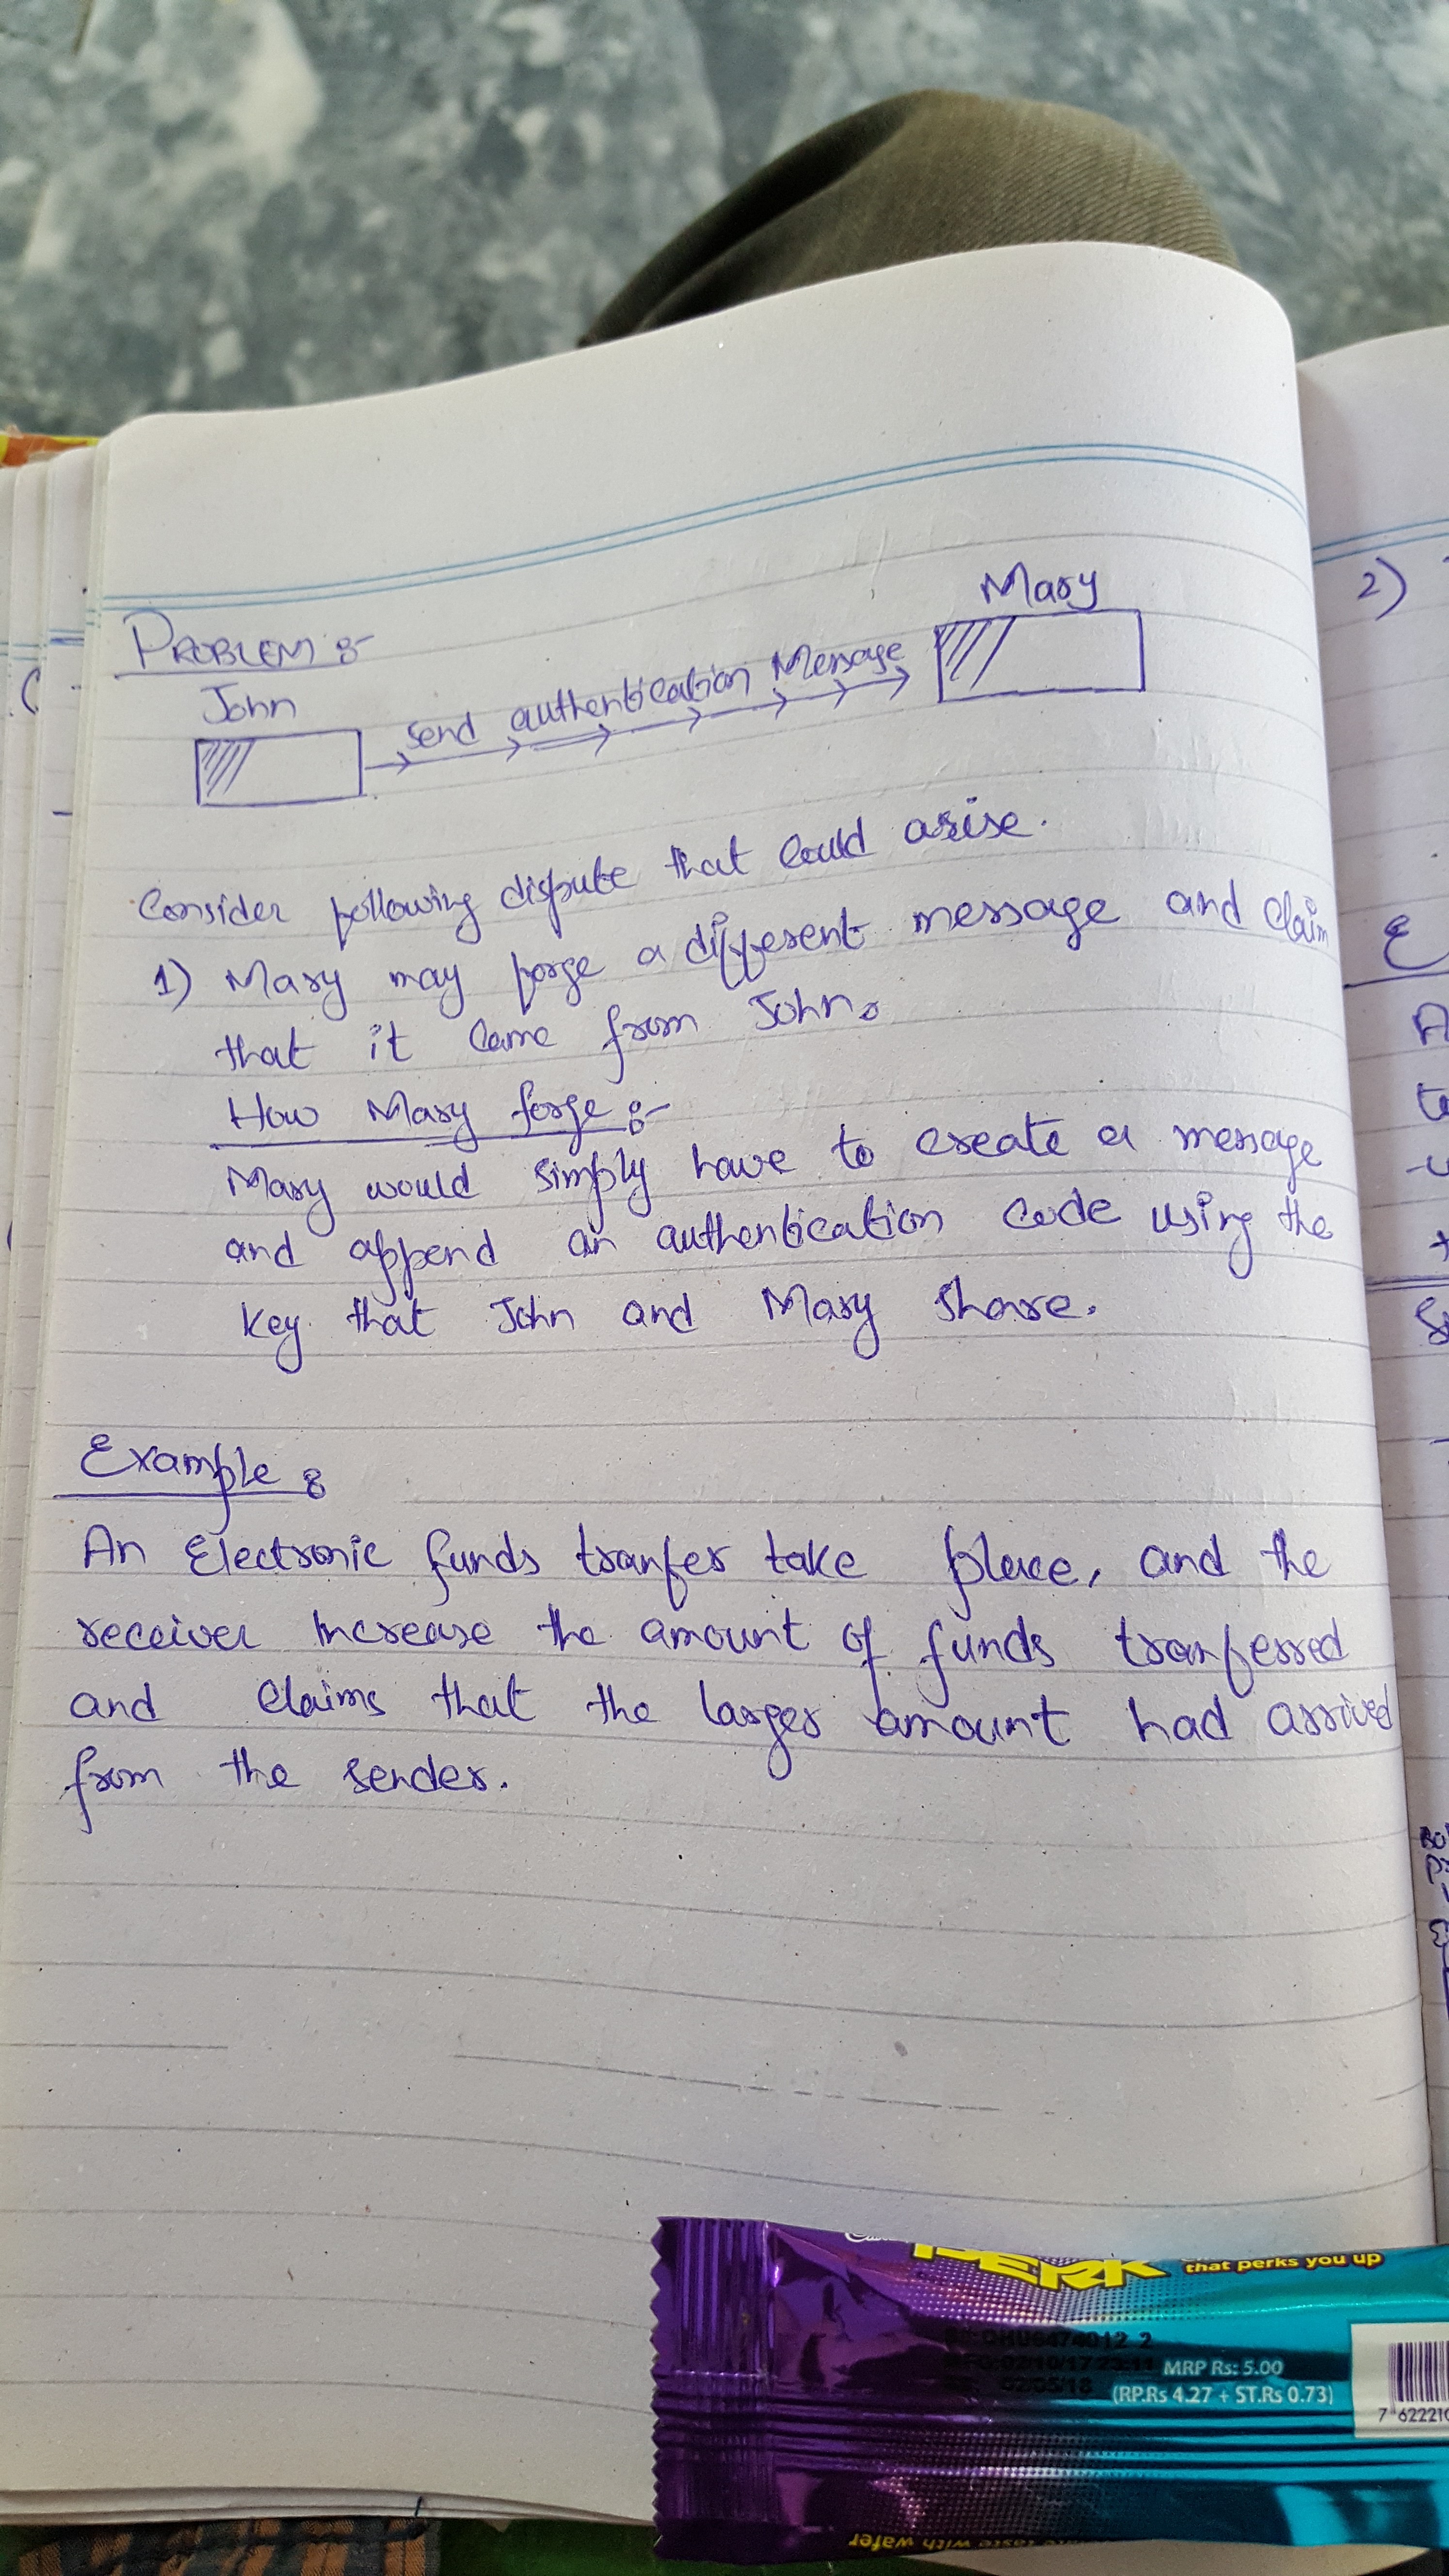 PROBLEM :-
Mary
John
Send authentication Message
Consider following dispute that could arise.
1) Mary may forge a different message and claim
that it came from John.
How Mary forge :-
Mary would simply have to create a message
and append an authentication code using the
key that John and Mary share.
Example :
An Electronic funds tranfer take place, and the
receiver increase the amount of funds tranferred
and claims that the larger amount had arrived
from the sender.
2)
PERK
that perks you up
MRP Rs: 5.00
(RP.Rs 4.27 + ST.Rs 0.73)
7 622210
wafer